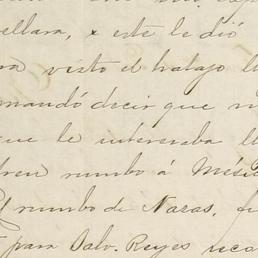 vellara, x este le dió
ra visto el trabajo l
mandó decir que n
ue le interesaba l
ren rumbo á Méxi
y rumbo de Naxas, f
para Salv. Reyes reca